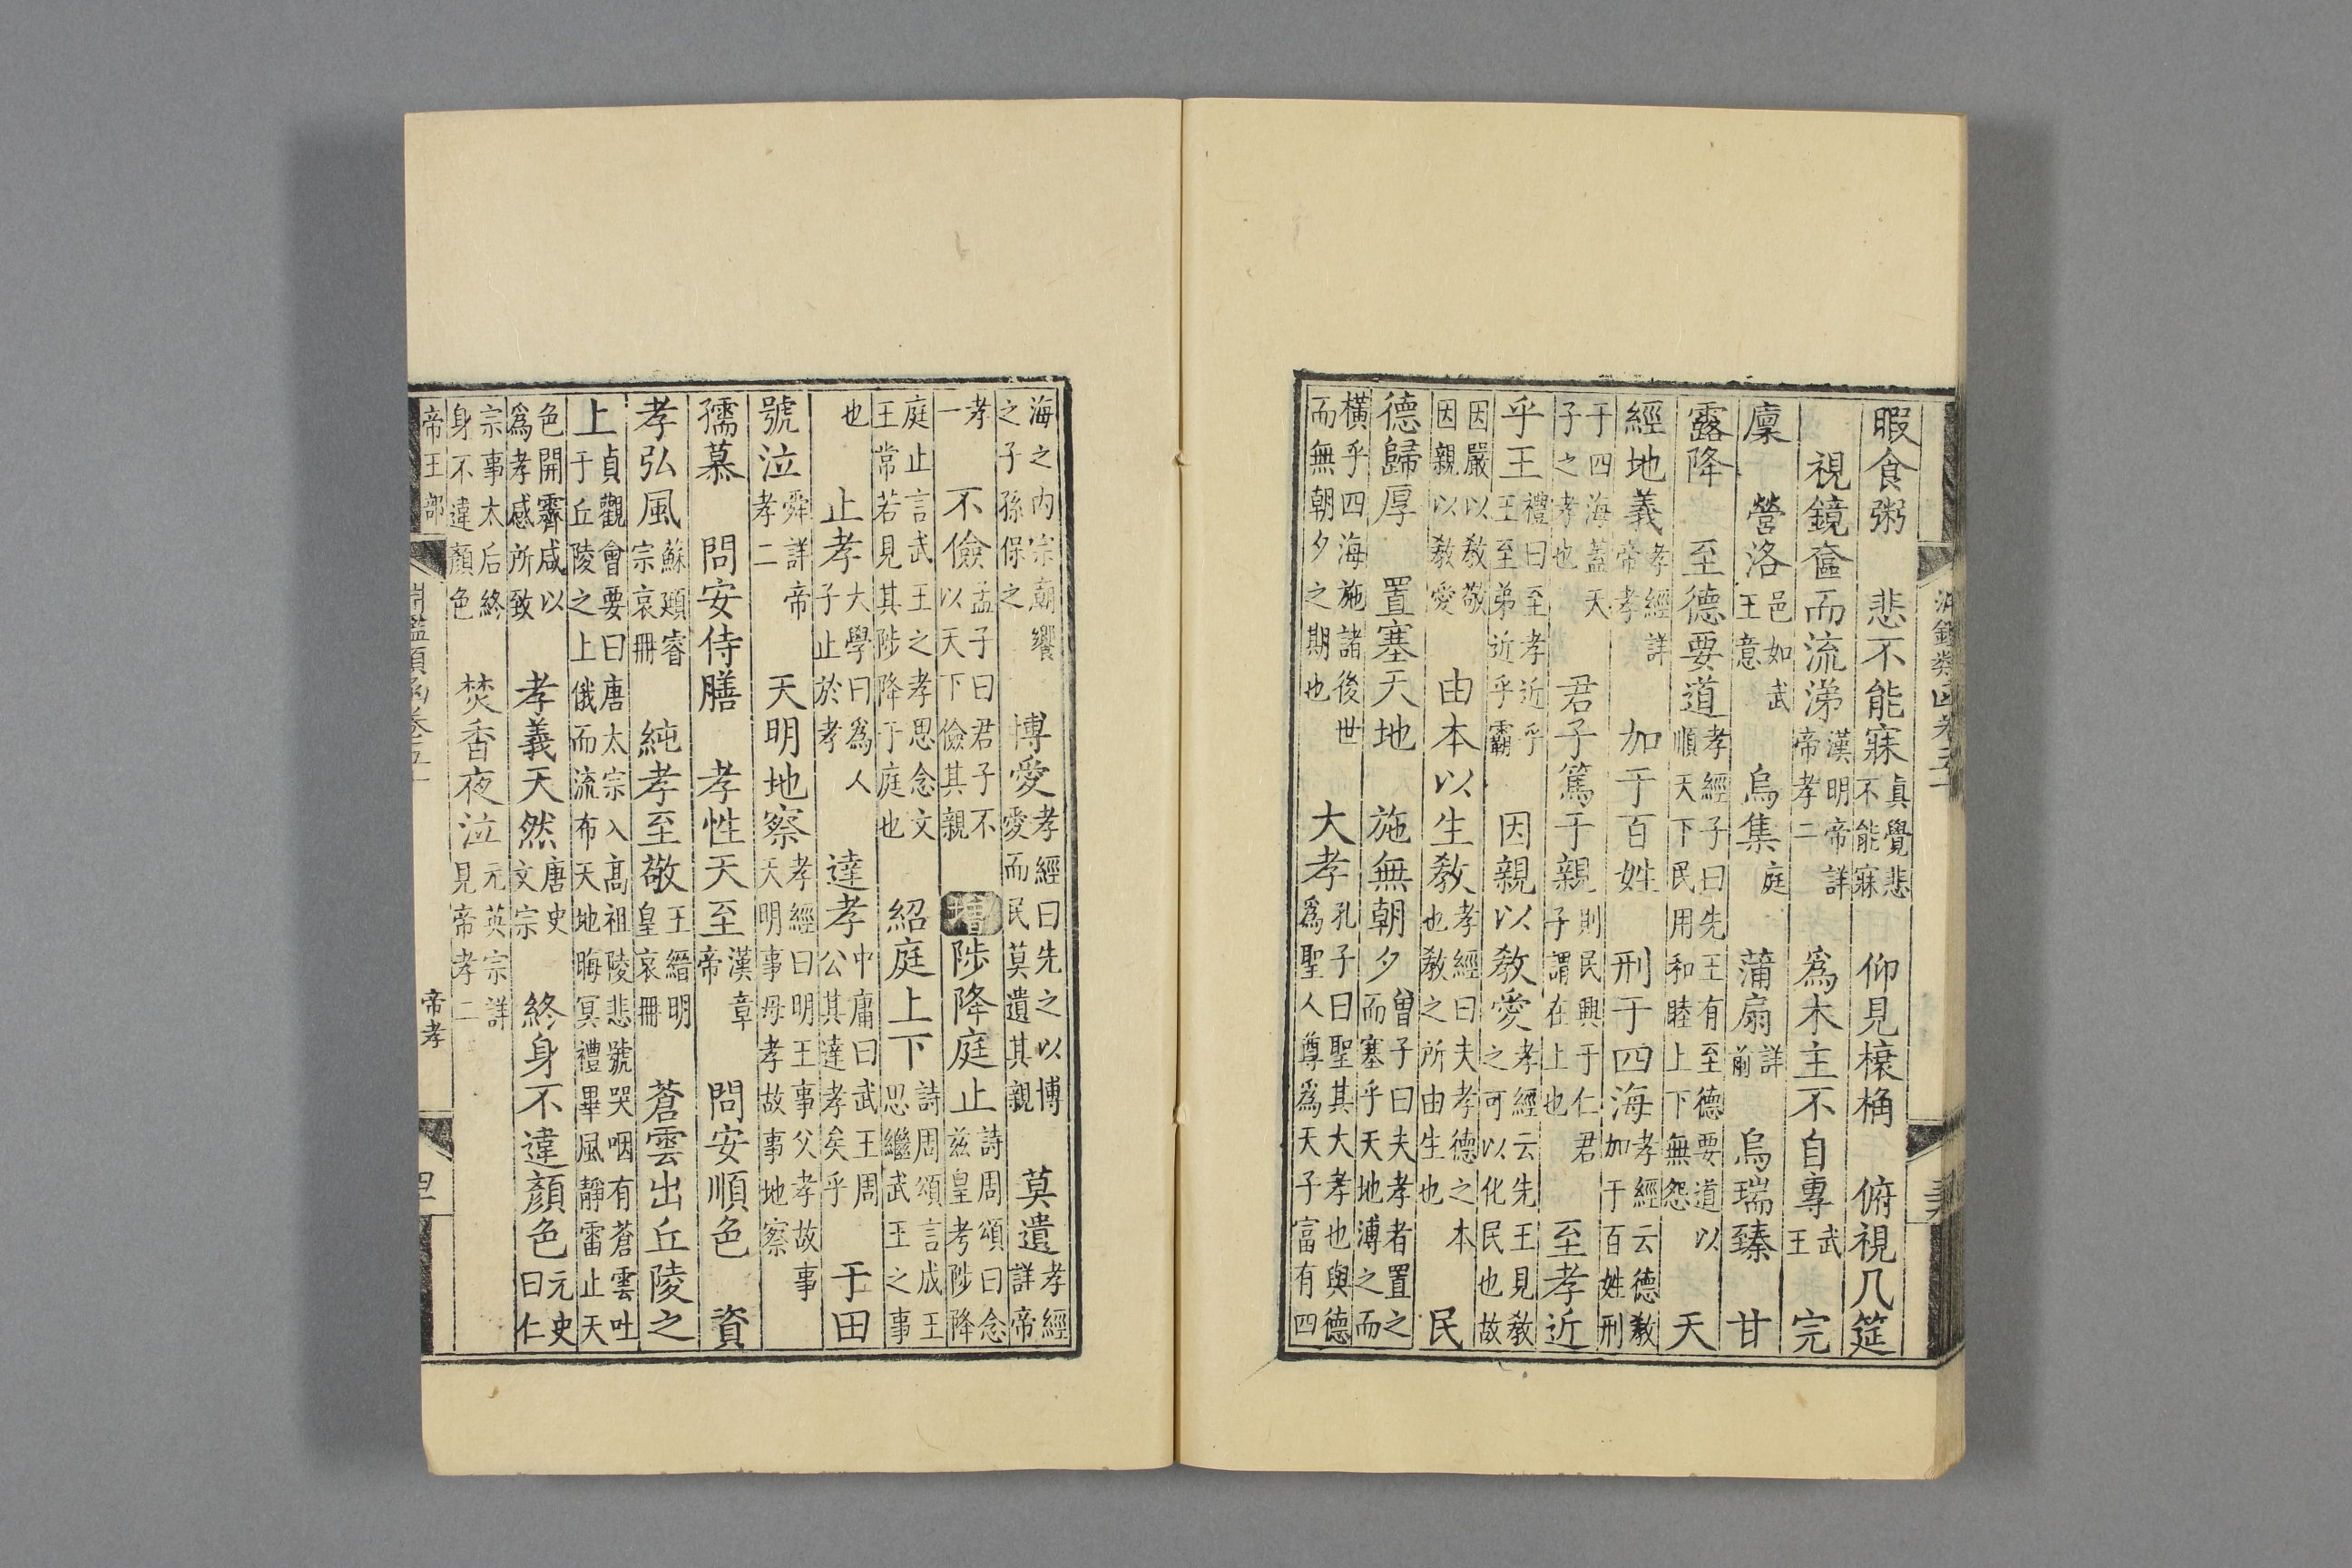 暇食粥　悲不能寐眞覺悲不能寐　仰見榱桷　俯視几筵
視鏡奩而流涕漢明帝詳帝孝二　爲木主不自專武王　完
廩　營洛邑如武王意　烏集庭　蒲扇詳前　烏瑞臻　甘
露降　至德要道孝經子曰先王有至德要道以順天下民用和睦上下無怨　天
經地義孝經詳帝孝　加于百姓　刑于四海孝經云德敎加于百姓刑
于四海蓋天子之孝也　君子篤于親則民興于仁君子謂在上也　至孝近
乎王禮曰至孝近乎王至弟近乎霸　因親以敎愛孝經云先王見敎之可以化民也故
因嚴以敎敬因親以敎愛　由本以生敎孝經曰夫孝德之本也敎之所由生也　民
德歸厚　置塞天地　施無朝夕曾子曰夫孝者置之而塞乎天地溥之而
橫乎四海施諸後世而無朝夕之期也　大孝孔子曰聖其大孝也與德爲聖人尊爲天子富有四
海之內宗廟饗之子孫保之　博愛孝經曰先之以博愛而民莫遺其親　莫遺孝經詳帝
孝一　不儉孟子曰君子不以天下儉其親　增陟降庭止詩周頌曰念兹皇考陟降
庭止言武王之孝思念文王常若見其陟降于庭也　紹庭上下詩周頌言成王思繼武王之事
也　止孝大學曰爲人子止於孝　達孝中庸曰武王周公其達孝矣乎　于田
號泣舜詳帝孝二　天明地察孝經曰明王事父孝故事天明事母孝故事地察
孺慕　問安侍膳　孝性天至漢章帝　問安順色　資
孝弘風蘇頲睿宗哀冊　純孝至敬王縉明皇哀冊　蒼雲出丘陵之
上貞觀會要曰唐太宗入高祖陵悲號哭咽有蒼雲吐于丘陵之上俄而流布天地晦冥禮畢風靜雷止天
色開霽咸以爲孝感所致　孝義天然唐史文宗　終身不違顏色元史曰仁
宗事太后終身不違顏色　焚香夜泣元英宗詳見帝孝二
帝王部　淵鑑類函卷五十　帝孝